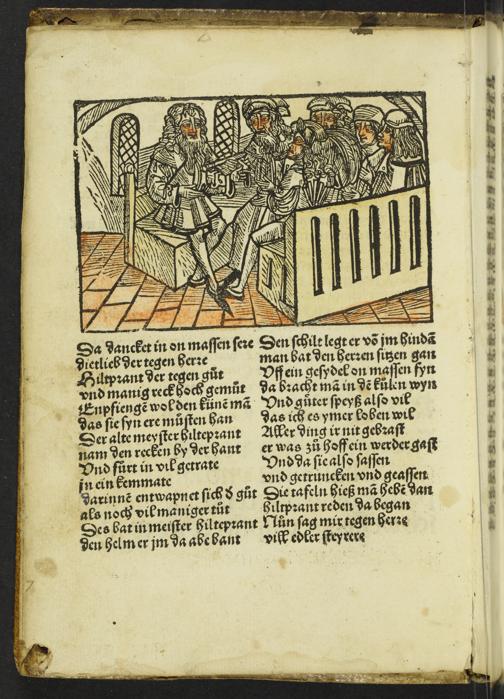 Da dancket in on massen sere
dietlieb der tegen herre
Hiltprant der tegen gůt
vnd manig reck hoch gemůt
Enpfiengē wol den kůnē mā
das sie syn ere můsten han
Der alte meyster hilteprant
nam den recken by der hant
Vnd fůrt in vil getrate
in ein kemmate
darinnē entwapnet sich d̓ gůt
als noch vil maniger tůt
Des bat in meister hilteprant
den helm er jm da abe bant
Den schilt legt er vō jm hindā
man bat den herren sitzen gan
Vff ein gesydel on massen fyn
da bracht mā in dē kůlen wyn
Vnd gůter speyß also vil
das ich es ymer loben wil
Aller ding ir nit gebrast
er was zů hoff ein werder gast
Vnd da sie also sassen
vnd getruncken vnd geassen
Die tafeln hieß mā hebē dan
hiltprant reden da began
Nůn sag mir tegen herre
vil edler steyrere